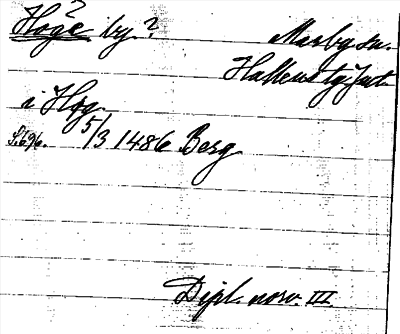 Höge by.?
Marby sn.
Hallens tg. Jmt.
i Hög.
S.696. 5/3 1486 Berg
Dipl. norv. III.